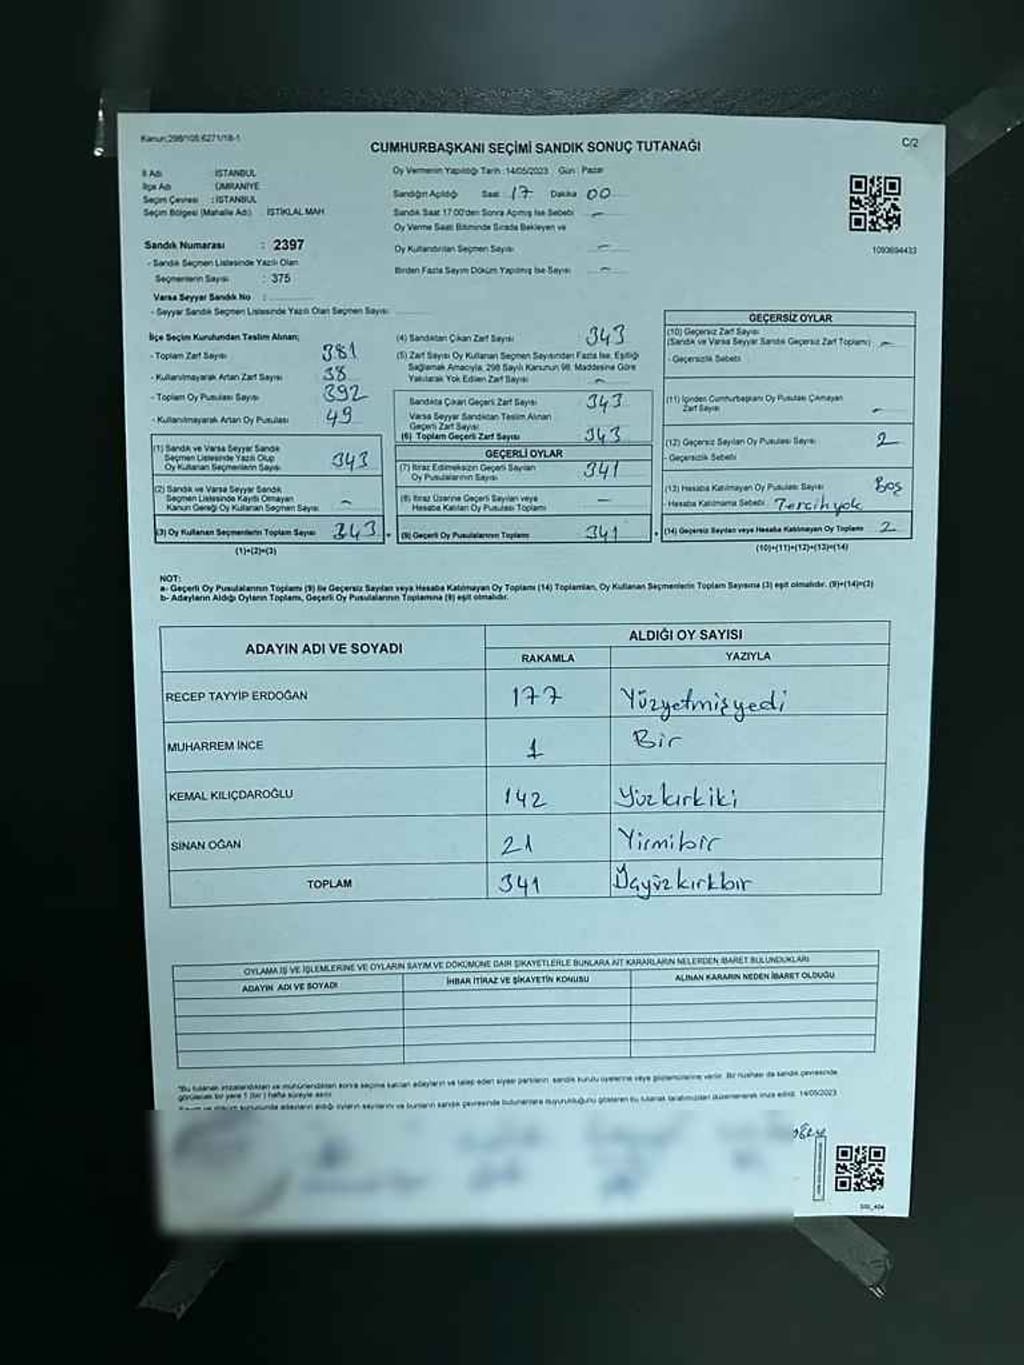 Kanun:298/105:6271/18-1
C/2
CUMHURBAŞKANI SEÇİMİ SANDIK SONUÇ TUTANAĞI
İl Adı : İSTANBUL
İlçe Adı : ÜMRANİYE
Seçim Çevresi : İSTANBUL
Seçim Bölgesi (Mahalle Adı) : İSTİKLAL MAH.
Oy Vermenin Yapıldığı Tarih :14/05/2023 Gün : Pazar
Sandığın Açıldığı Saat : 17 Dakika 00
Sandık Saat 17.00'den Sonra Açılmış İse Sebebi : —
Oy Verme Saati Bitiminde Sırada Bekleyen ve
Oy Kullandırılan Seçmen Sayısı : —
Birden Fazla Sayım Döküm Yapılmış İse Sayısı : —
1093694433
Sandık Numarası : 2397
- Sandık Seçmen Listesinde Yazılı Olan
Seçmenlerin Sayısı : 375
Varsa Seyyar Sandık No :
- Seyyar Sandık Seçmen Listesinde Yazılı Olan Seçmen Sayısı:
İlçe Seçim Kurulundan Teslim Alınan;
- Toplam Zarf Sayısı : 381
- Kullanılmayarak Artan Zarf Sayısı : 38
- Toplam Oy Pusulası Sayısı : 392
- Kullanılmayarak Artan Oy Pusulası : 49
(1) Sandık ve Varsa Seyyar Sandık
Seçmen Listesinde Yazılı Olup
Oy Kullanan Seçmenlerin Sayısı : 343
(2) Sandık ve Varsa Seyyar Sandık
Seçmen Listesinde Kayıtlı Olmayan
Kanun Gereği Oy Kullanan Seçmen Sayısı : —
(3) Oy Kullanan Seçmenlerin Toplam Sayısı : 343
(1)+(2)=(3)
(4) Sandıktan Çıkan Zarf Sayısı : 343
(5) Zarf Sayısı Oy Kullanan Seçmen Sayısından Fazla İse, Eşitliği
Sağlamak Amacıyla, 298 Sayılı Kanunun 98. Maddesine Göre
Yakılarak Yok Edilen Zarf Sayısı : —
Sandıkta Çıkan Geçerli Zarf Sayısı : 343
Varsa Seyyar Sandıktan Teslim Alınan
Geçerli Zarf Sayısı :
(6) Toplam Geçerli Zarf Sayısı : 343
GEÇERLİ OYLAR
(7) İtiraz Edilmeksizin Geçerli Sayılan
Oy Pusulasının Sayısı : 341
(8) İtiraz Üzerine Geçerli Sayılan veya
Hesaba Katılan Oy Pusulası Toplamı : —
(9) Geçerli Oy Pusulalarının Toplamı : 341
GEÇERSİZ OYLAR
(10) Geçersiz Zarf Sayısı
(Sandık ve Varsa Seyyar Sandık Geçersiz Zarf Toplamı) : —
- Geçersizlik Sebebi :
(11) İçinden Cumhurbaşkanı Oy Pusulası Çıkmayan
Zarf Sayısı : —
(12) Geçersiz Sayılan Oy Pusulası Sayısı : 2
- Geçersizlik Sebebi :
(13) Hesaba Katılmayan Oy Pusulası Sayısı : Boş
- Hesaba Katılmama Sebebi : Tercih yok
(14) Geçersiz Sayılan veya Hesaba Katılmayan Oy Toplamı : 2
(10)+(11)+(12)+(13)=(14)
NOT:
a- Geçerli Oy Pusulalarının Toplamı (9) ile Geçersiz Sayılan veya Hesaba Katılmayan Oy Toplamı (14) Toplamları, Oy Kullanan Seçmenlerin Toplam Sayısına (3) eşit olmalıdır. (9)+(14)=(3)
b- Adayların Aldığı Oyların Toplamı, Geçerli Oy Pusulalarının Toplamına (9) eşit olmalıdır.
ADAYIN ADI VE SOYADI
ALDIĞI OY SAYISI
RAKAMLA YAZIYLA
RECEP TAYYİP ERDOĞAN 177 Yüzyetmişyedi
MUHARREM İNCE 1 Bir
KEMAL KILIÇDAROĞLU 142 Yüzkırkiki
SİNAN OĞAN 21 Yirmibir
TOPLAM 341 Üçyüzkırkbir
OYLAMA İŞ VE İŞLEMLERİNE VE OYLARIN SAYIM VE DÖKÜMÜNE DAİR ŞİKAYETLERLE BUNLARA AİT KARARLARIN NELERDEN İBARET BULUNDUKLARI
ADAYIN ADI VE SOYADI İHBAR İTİRAZ VE ŞİKAYETİN KONUSU ALINAN KARARIN NEDEN İBARET OLDUĞU
"Bu tutanak imzalandıktan ve mühürlendikten sonra seçime katılan adayların ve talep eden siyasi partilerin sandık kurulu üyelerine veya gözlemcilerine verilir. Bir nüshası da sandık çevresinde
görülecek bir yere 1 (bir) hafta süreyle asılır.